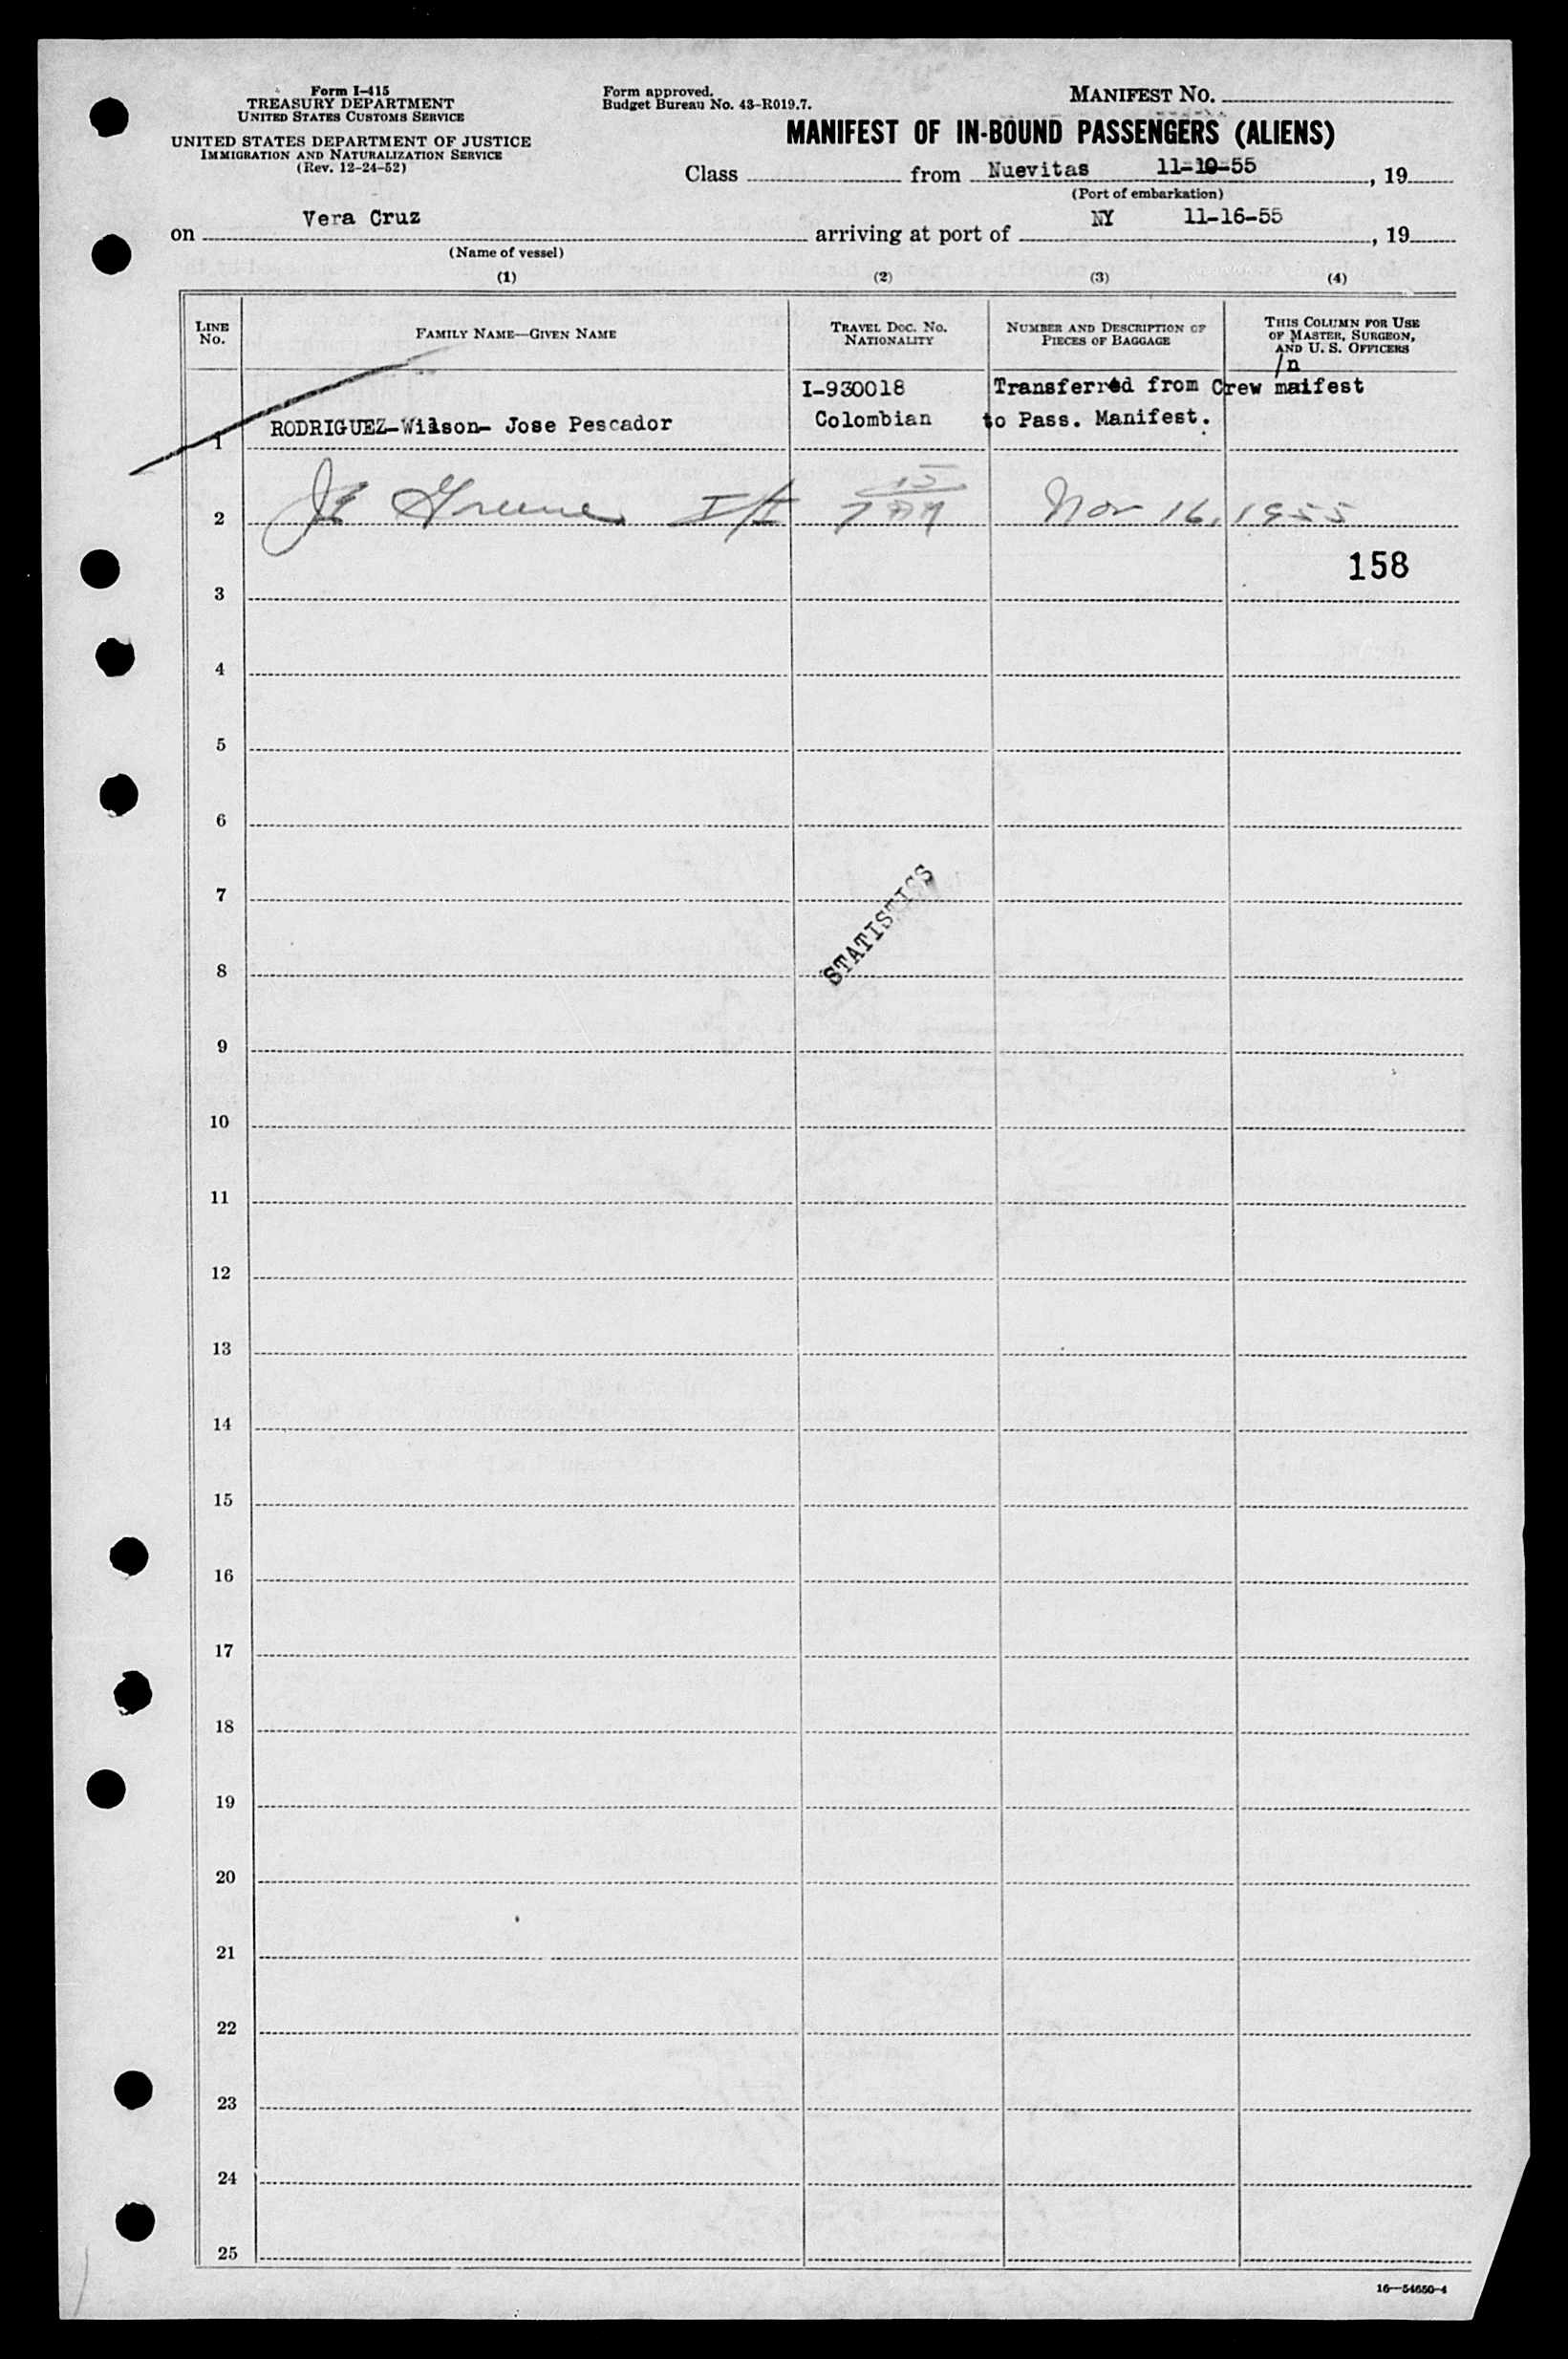 Form I-415
TREASURY DEPARTMENT
UNITED STATES CUSTOMS SERVICE
UNITED STATES DEPARTMENT OF JUSTICE
IMMIGRATION AND NATURALIZATION SERVICE
(Rev. 12-24-52)
Form approved.
Budget Bureau No. 43-R019.7.
MANIFEST NO.
MANIFEST OF IN-BOUND PASSENGERS (ALIENS)
Class from Nuevitas 11-10-55, 19
(Port of embarkation)
on Vera Cruz arriving at port of NY 11-16-55, 19
(Name of vessel)
(1) (2) (3) (4)
LINE NO. FAMILY NAME—GIVEN NAME TRAVEL DOC. NO. NATIONALITY NUMBER AND DESCRIPTION OF PIECES OF BAGGAGE THIS COLUMN FOR USE OF MASTER, SURGEON, AND U. S. OFFICERS
n
I-930018 Transferred from Crew maifest
1 RODRIGUEZ-Wilson- Jose Pescador Colombian to Pass. Manifest.
2 Greene Nov 16, 1955
158
3
4
5
6
7
STATISTICS
8
9
10
11
12
13
14
15
16
17
18
19
20
21
22
23
24
25
16—54650-4